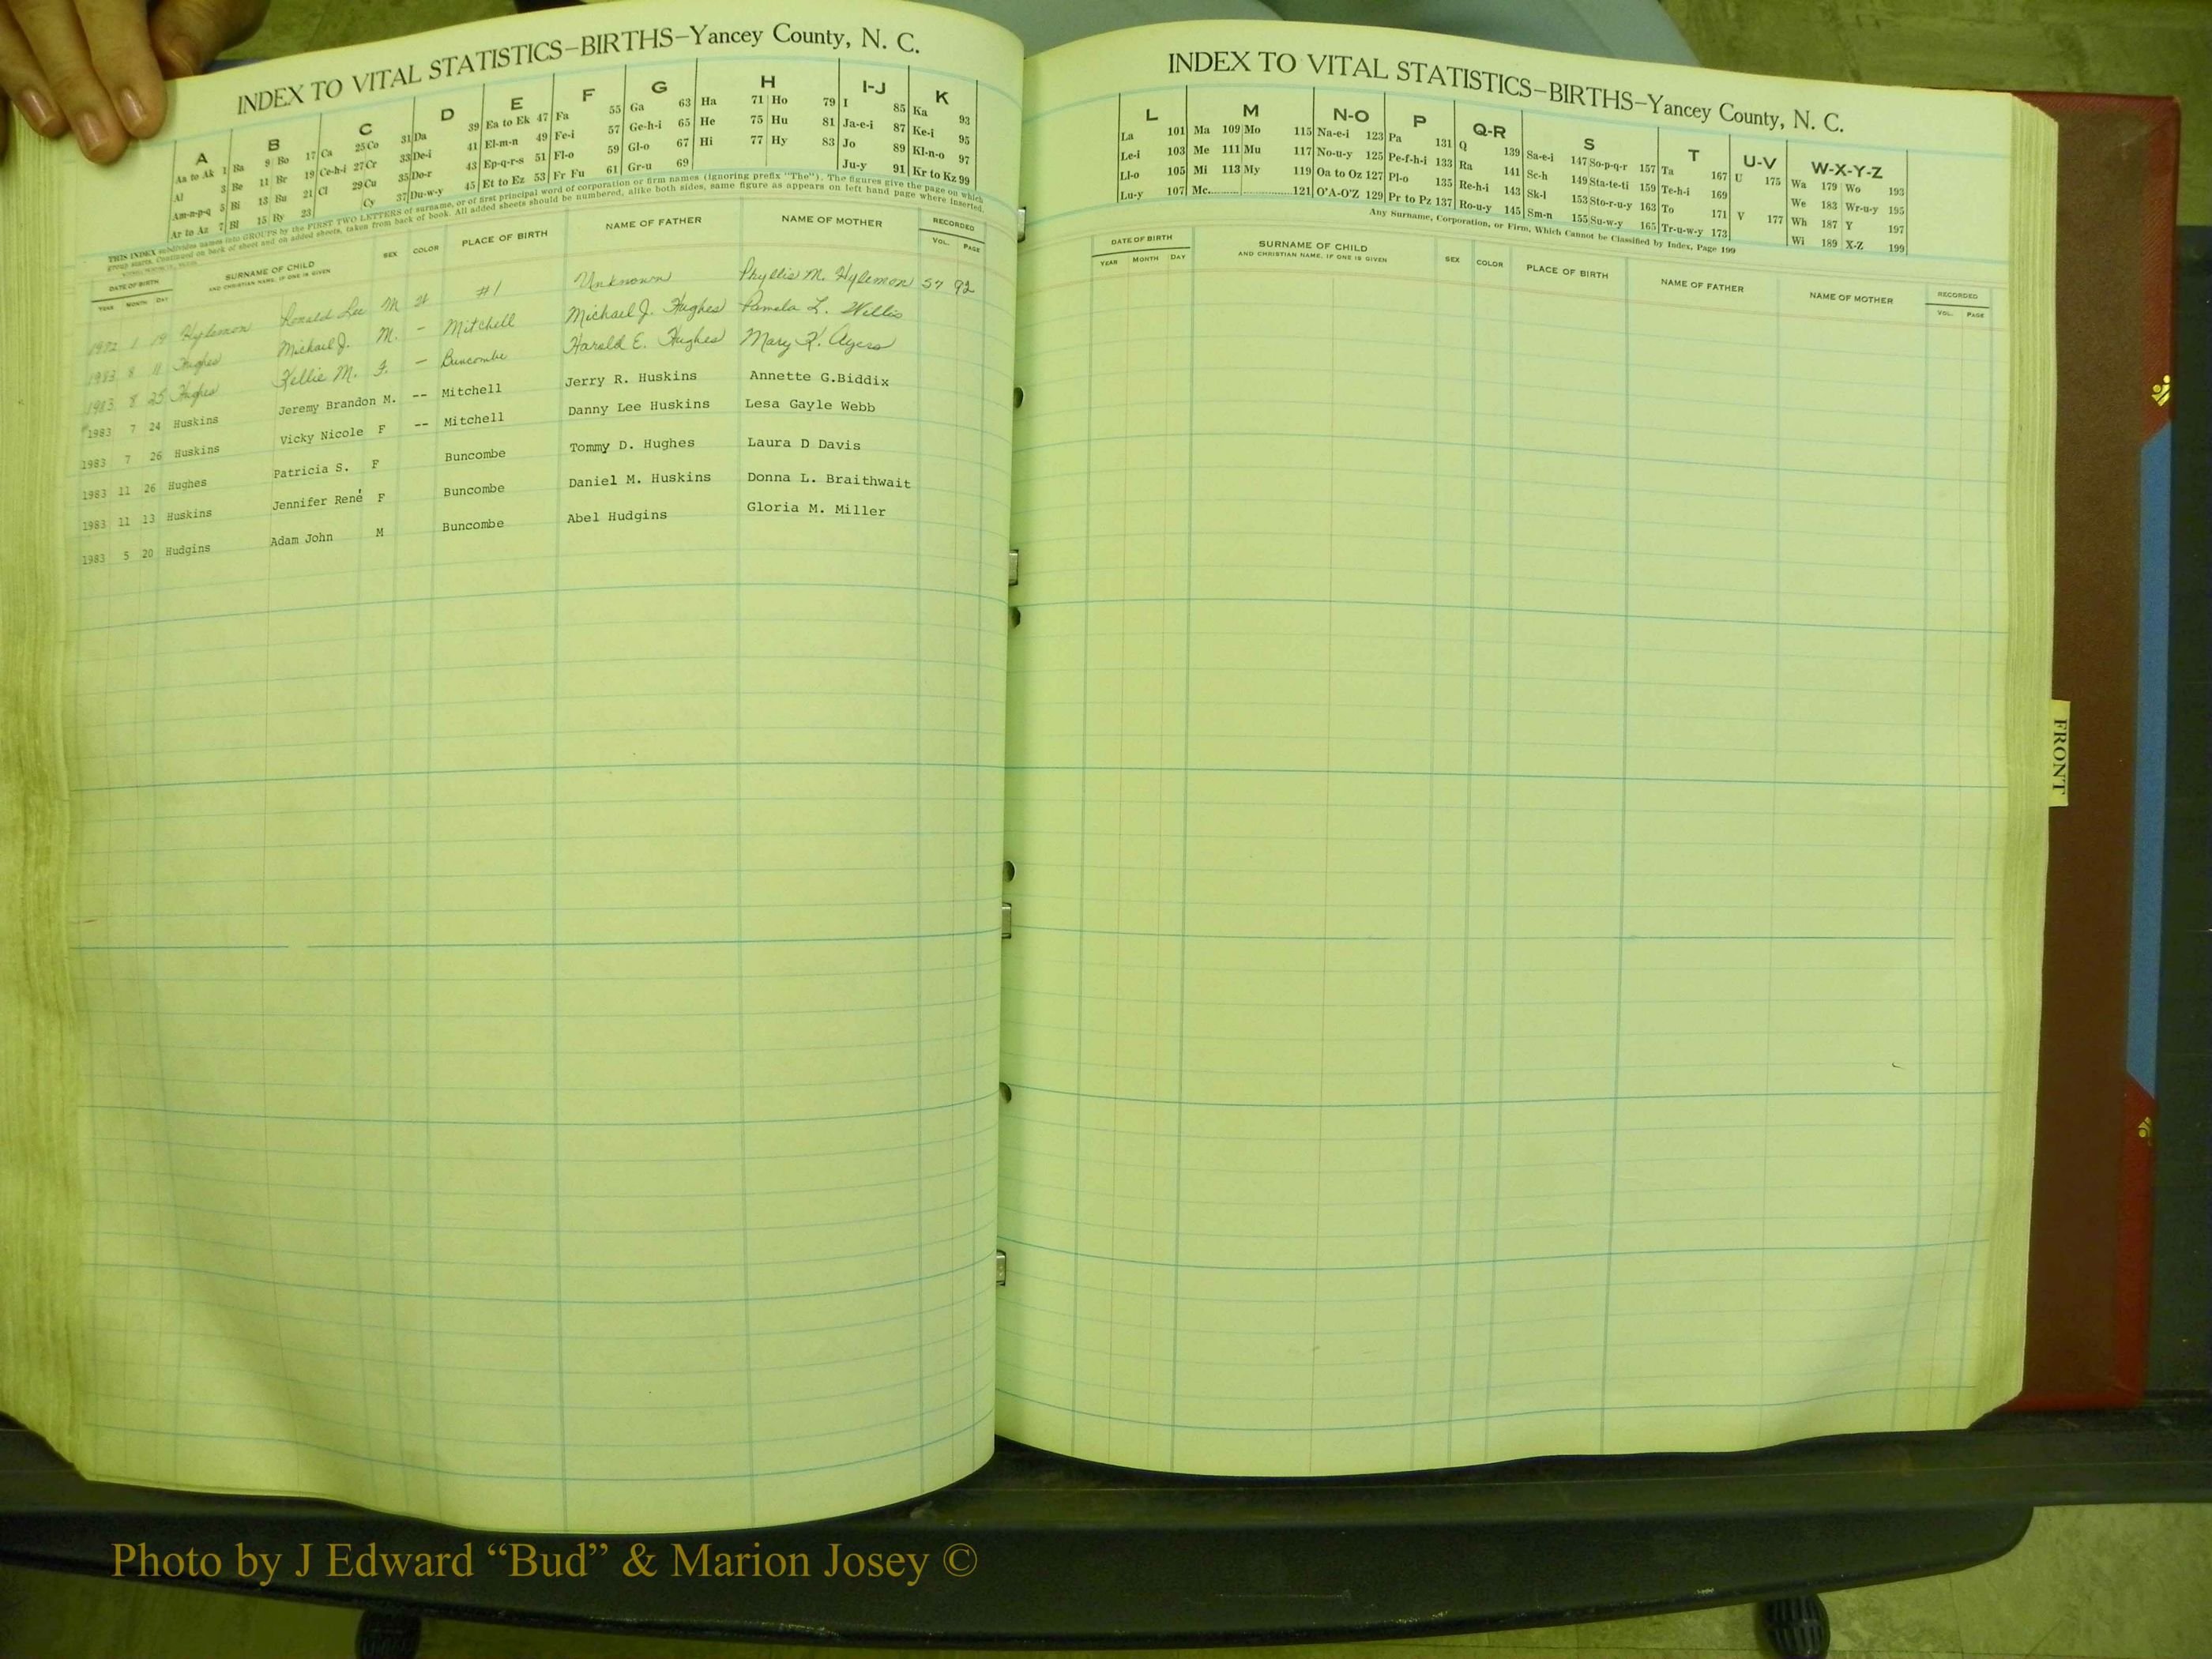 INDEX TO VITAL STATISTICS–BIRTHS–Yancey County, N. C.
A B C D E F G H I-J K
Aa to Ak 1 Ba 9 Bo 17 Ca 25 Co 31 Da 39 Ea to Ek 47 Fa 55 Ga 63 Ha 71 Ho 79 I 85 Ka 93
Al 3 Be 11 Br 19 Ce-h-i 27 Cr 33 De-i 41 El-m-n 49 Fe-i 57 Ge-h-i 65 He 75 Hu 81 Ja-e-i 87 Ke-i 95
Am-n-p-q 5 Bi 13 Bu 21 Cl 29 Cu 35 Do-r 43 Ep-q-r-s 51 Fl-o 59 Gl-o 67 Hi 77 Hy 83 Jo 89 Kl-n-o 97
Ar to Az 7 Bl 15 By 23 Cy 37 Du-w-y 45 Et to Ez 53 Fr Fu 61 Gr-u 69 Ju-y 91 Kr to Kz 99
THIS INDEX subdivides names into GROUPS by the FIRST TWO LETTERS of surname, or of first principal word of corporation or firm names (ignoring prefix "The"). The figures give the page on which
group starts. Continued on back of sheet and on added sheets, taken from back of book. All added sheets should be numbered, alike both sides, same figure as appears on left hand page where inserted.
DATE OF BIRTH SURNAME OF CHILD SEX COLOR PLACE OF BIRTH NAME OF FATHER NAME OF MOTHER RECORDED
YEAR MONTH DAY AND CHRISTIAN NAME, IF ONE IS GIVEN VOL. PAGE
1972 1 19 Hylemon Ronald Lee M W #1 Unknown Phyllis M. Hylemon 57 92
1983 8 11 Hughes Michael J. M. - Mitchell Michael J. Hughes Pamela L. Willis
1983 8 25 Hughes Kellie M. F. - Buncombe Harold E. Hughes Mary K. Ayers
1983 7 24 Huskins Jeremy Brandon M. -- Mitchell Jerry R. Huskins Annette G.Biddix
1983 7 26 Huskins Vicky Nicole F -- Mitchell Danny Lee Huskins Lesa Gayle Webb
1983 11 26 Hughes Patricia S. F Buncombe Tommy D. Hughes Laura D Davis
1983 11 13 Huskins Jennifer René F Buncombe Daniel M. Huskins Donna L. Braithwait
1983 5 20 Hudgins Adam John M Buncombe Abel Hudgins Gloria M. Miller
INDEX TO VITAL STATISTICS–BIRTHS–Yancey County, N. C.
L M N-O P Q-R S T U-V W-X-Y-Z
La 101 Ma 109 Mo 115 Na-e-i 123 Pa 131 Q 139 Sa-e-i 147 So-p-q-r 157 Ta 167 U 175 Wa 179 Wo 193
Le-i 103 Me 111 Mu 117 No-u-y 125 Pe-f-h-i 133 Ra 141 Sc-h 149 Sta-te-ti 159 Te-h-i 169 We 183 Wr-u-y 195
Ll-o 105 Mi 113 My 119 Oa to Oz 127 Pl-o 135 Re-h-i 143 Sk-l 153 Sto-r-u-y 163 To 171 V 177 Wh 187 Y 197
Lu-y 107 Mc. 121 O'A-O'Z 129 Pr to Pz 137 Ro-u-y 145 Sm-n 155 Su-w-y 165 Tr-u-w-y 173 Wi 189 X-Z 199
Any Surname, Corporation, or Firm, Which Cannot be Classified by Index, Page 199
DATE OF BIRTH SURNAME OF CHILD SEX COLOR PLACE OF BIRTH NAME OF FATHER NAME OF MOTHER RECORDED
YEAR MONTH DAY AND CHRISTIAN NAME, IF ONE IS GIVEN VOL. PAGE
FRONT
Photo by J Edward “Bud” & Marion Josey ©